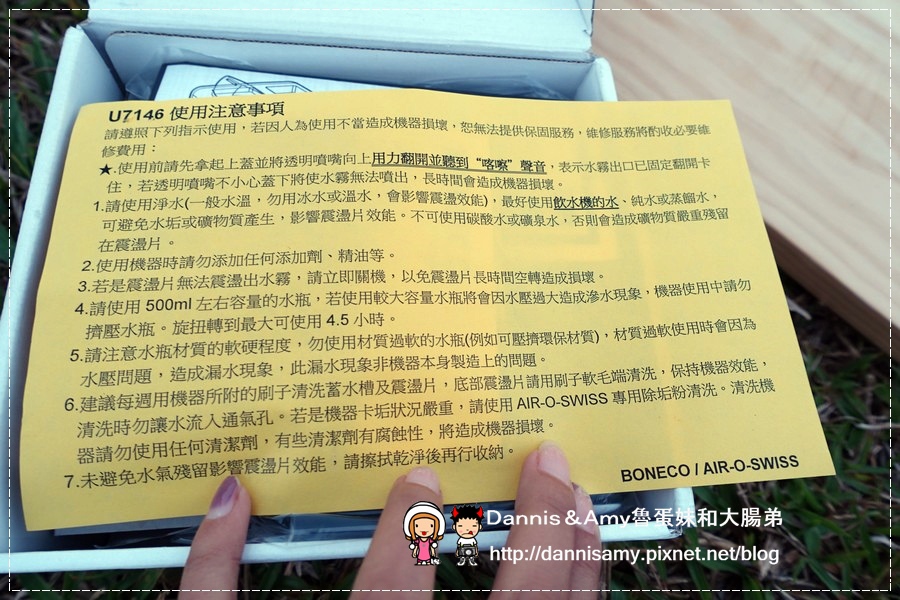 U7146 使用注意事項
請遵照下列指示使用，若因人為使用不當造成機器損壞，恕無法提供保固服務，維修服務將酌收必要維
修費用：
★.使用前請先拿起上蓋並將透明噴嘴向上用力翻開並聽到“喀嚓”聲音，表示水霧出口已固定翻開卡
住，若透明噴嘴不小心蓋下將使水霧無法噴出，長時間會造成機器損壞。
1.請使用淨水(一般水溫，勿用冰水或溫水，會影響震盪效能)，最好使用飲水機的水、純水或蒸餾水，
可避免水垢或礦物質產生，影響震盪片效能。不可使用碳酸水或礦泉水，否則會造成礦物質嚴重殘留
在震盪片。
2.使用機器時請勿添加任何添加劑、精油等。
3.若是震盪片無法震盪出水霧，請立即關機，以免震盪片長時間空轉造成損壞。
4.請使用 500ml 左右容量的水瓶，若使用較大容量水瓶將會因水壓過大造成滲水現象，機器使用中請勿
擠壓水瓶。旋扭轉到最大可使用 4.5 小時。
5.請注意水瓶材質的軟硬程度，勿使用材質過軟的水瓶(例如可壓擠環保材質)，材質過軟使用時會因為
水壓問題，造成漏水現象，此漏水現象非機器本身製造上的問題。
6.建議每週用機器所附的刷子清洗蓄水槽及震盪片，底部震盪片請用刷子軟毛端清洗，保持機器效能，
清洗時勿讓水流入通氣孔。若是機器卡垢狀況嚴重，請使用 AIR-O-SWISS 專用除垢粉清洗。清洗機
器請勿使用任何清潔劑，有些清潔劑有腐蝕性，將造成機器損壞。
7.未避免水氣殘留影響震盪片效能，請擦拭乾淨後再行收納。
BONECO / AIR-O-SWISS
Dannis＆Amy魯蛋妹和大腸弟
http://dannisamy.pixnet.net/blog